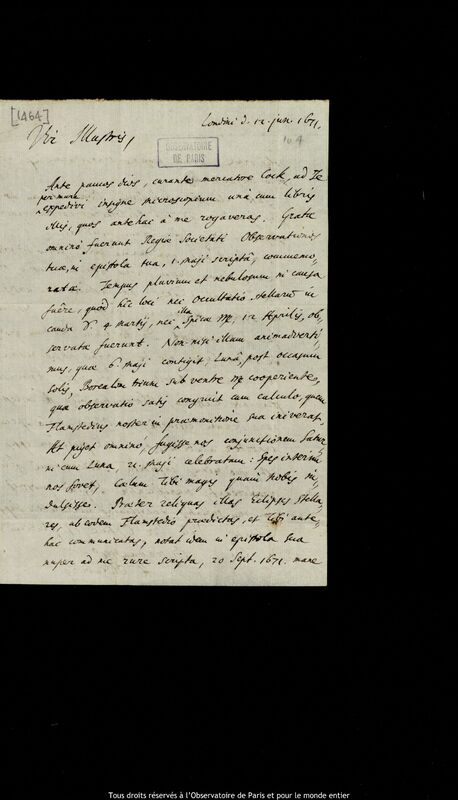 [1464]
Londini d. 12. jun. 1671.
Vir Illustris,
104
OBSERVATOIRE
DE PARIS
Ante paucos dies, curante mercatore Cock, ad Te
per mare
expedivi insigne microscopium unà cum libris
illis, quos antehac à me rogaveras. Gratæ
omninò fuerunt Regiæ Societati Observationes
tuæ, in epistola tua, 1. maji scriptâ, commemo,
ratæ. Tempus pluvium et nebulosum in causa
fuêre, quòd hîc loci nec occultatio stellarũ in
cauda ♉ 4 martij, nec illa Spicæ ♍, 12 Aprilis, ob,
servata fuerunt. Non nisi illam animadverti,
mus, quæ 6 maji contigit, Lunâ, post occasum
Solis, Borealem trium sub ventre ♍ cooperiente,
quæ observatio satis congruit cum calculo, quem
Flamstedius noster in præmonitione sua iniverat.
At piget omninò, fugisse nos conjunctionem Satur,
ni cum Luna, 21. maji celebratam: Spes interim
nos fovet, Cœlum Tibi magis quam nobis in,
dulsisse. Præter reliquas illas Eclipses Stella,
res, ab eodem Flamstedio prædictas, et Tibi ante,
hac communicatas, notat idem in epistola sua
nuper ad me rure scripta, 20 Sept. 1671. mane
Tous droits réservés à l'Observatoire de Paris et pour le monde entier